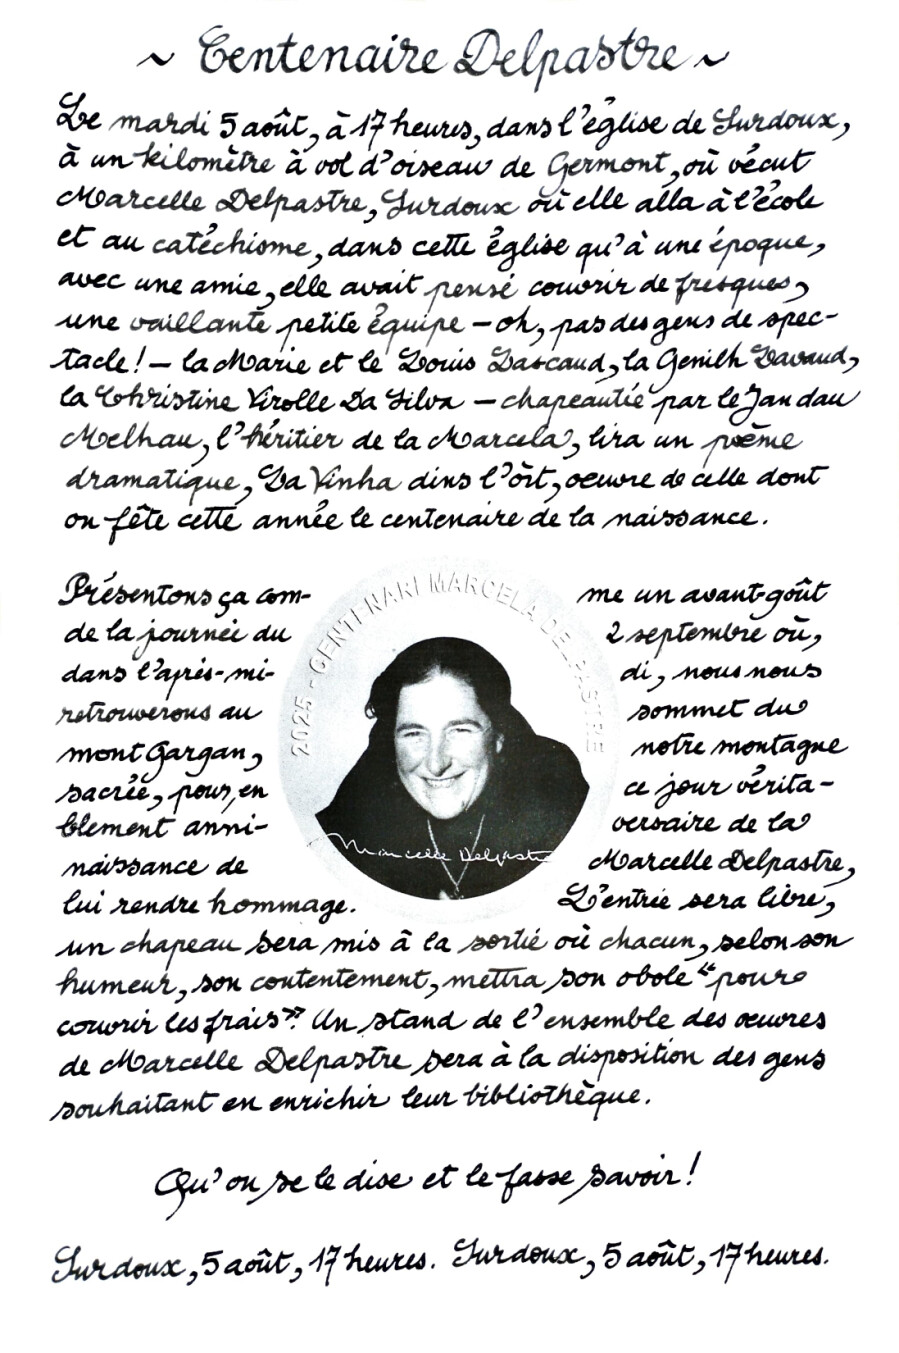 ~ Centenaire Delpastre ~
Le mardi 5 août, à 17 heures, dans l'église de Surdoux,
à un kilomètre à vol d'oiseau de Germont, où vécut
Marcelle Delpastre, Surdoux où elle alla à l'école
et au catéchisme, dans cette église qu'à une époque,
avec une amie, elle avait pensé couvrir de fresques,
une vaillante petite équipe – oh, pas des gens de spec-
tacle ! – la Marie et le Louis Lascaud, la Genilh Davaud,
la Christine Virolle Da Silva – chapeautée par le Jan dau
Melhau, l'héritier de la Marcela, lira un poème
dramatique, La Vinha dins l'òrt, oeuvre de celle dont
on fête cette année le centenaire de la naissance.
Présentons ça com- me un avant-goût
de la journée du 2 septembre où,
dans l'après-mi- di, nous nous
retrouverons au sommet du
mont Gargan, notre montagne
sacrée, pour, en ce jour vérita-
blement anni- versaire de la
naissance de Marcelle Delpastre,
lui rendre hommage. L'entrée sera libre,
un chapeau sera mis à la sortie où chacun, selon son
humeur, son contentement, mettra son obole "pour
couvrir les frais". Un stand de l'ensemble des oeuvres
de Marcelle Delpastre sera à la disposition des gens
souhaitant en enrichir leur bibliothèque.
2025 - CENTENARI MARCELA DELPASTRE
Marcelle Delpastre
Qu'on se le dise et le fasse savoir !
Surdoux, 5 août, 17 heures. Surdoux, 5 août, 17 heures.